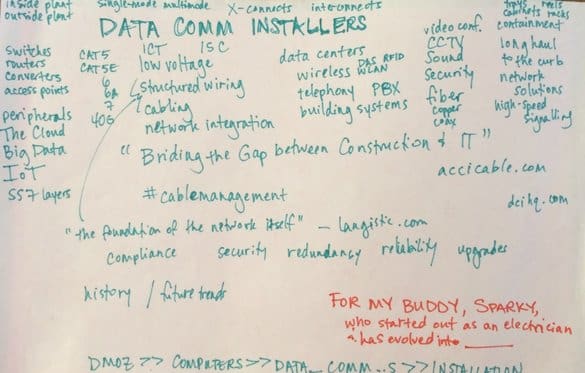 inside plant single-mode multimode X-connects interconnects trays reels
outside plant cabinets racks
DATA COMM INSTALLERS video conf. containment
switches CAT5 ICT ISC data centers CCTV long haul
routers CAT5E low voltage wireless DAS RFID WLAN Sound to the curb
converters 6 structured wiring telephony PBX Security network
access points 6a cabling building systems fiber solutions
peripherals 7 network integration copper high-speed
The Cloud 40G coax signalling
Big Data " Briding the Gap between Construction & IT "
IoT accicable.com
SS7 layers #cablemanagement
dcihq.com
"the foundation of the network itself" – langistic.com
compliance security redundancy reliability upgrades
history / future trends
FOR MY BUDDY, SPARKY,
who started out as an electrician
^ has evolved into ________
DMOZ >> COMPUTERS >> DATA_ COMM..S >> INSTALLATION